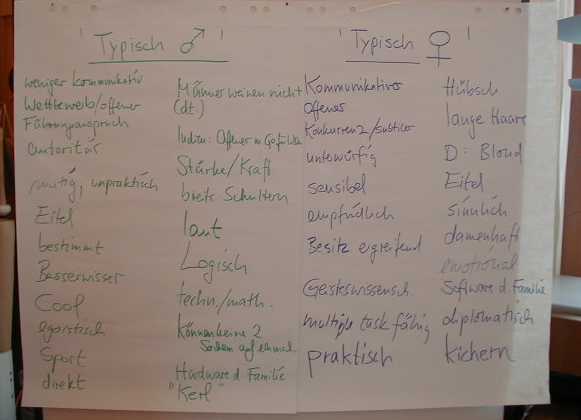 ' Typisch ♂ '
weniger kommunikativ
Wettbewerb/offener
Führungsanspruch
autoritär
mutig, unpraktisch
Eitel
bestimmt
Besserwisser
Cool
egoistisch
Sport
direkt
Männer weinen nicht
(dt.)
Indien: Offener
Stärke/Kraft
breite Schultern
laut
Logisch
techn./math.
Können keine 2
Sachen auf einmal
Hardware d Familie
"Kerl"
' Typisch ♀ '
Kommunikativer
Offener
Konkurrenz/subtiler
unterwürfig
sensibel
empfindlich
Besitz ergreifend
Geisteswissensch.
multiple task fähig
praktisch
Hübsch
lange Haare
D: Blond
Eitel
sinnlich
damenhaft
emotional
Software d Familie
diplomatisch
kichern